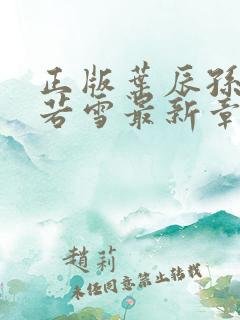 正版叶辰孙
若雪最新章
趙莉
未经同意禁止转载